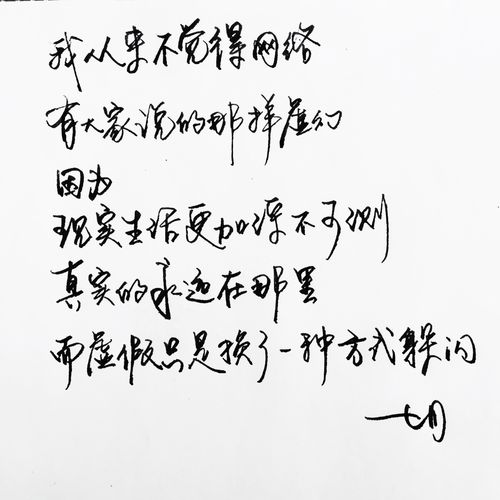 我从来不觉得网络
有大家说的那样虚幻
因为
现实生活更加深不可测
真实的永远在那里
而虚假只是换了一种方式躲闪
七月